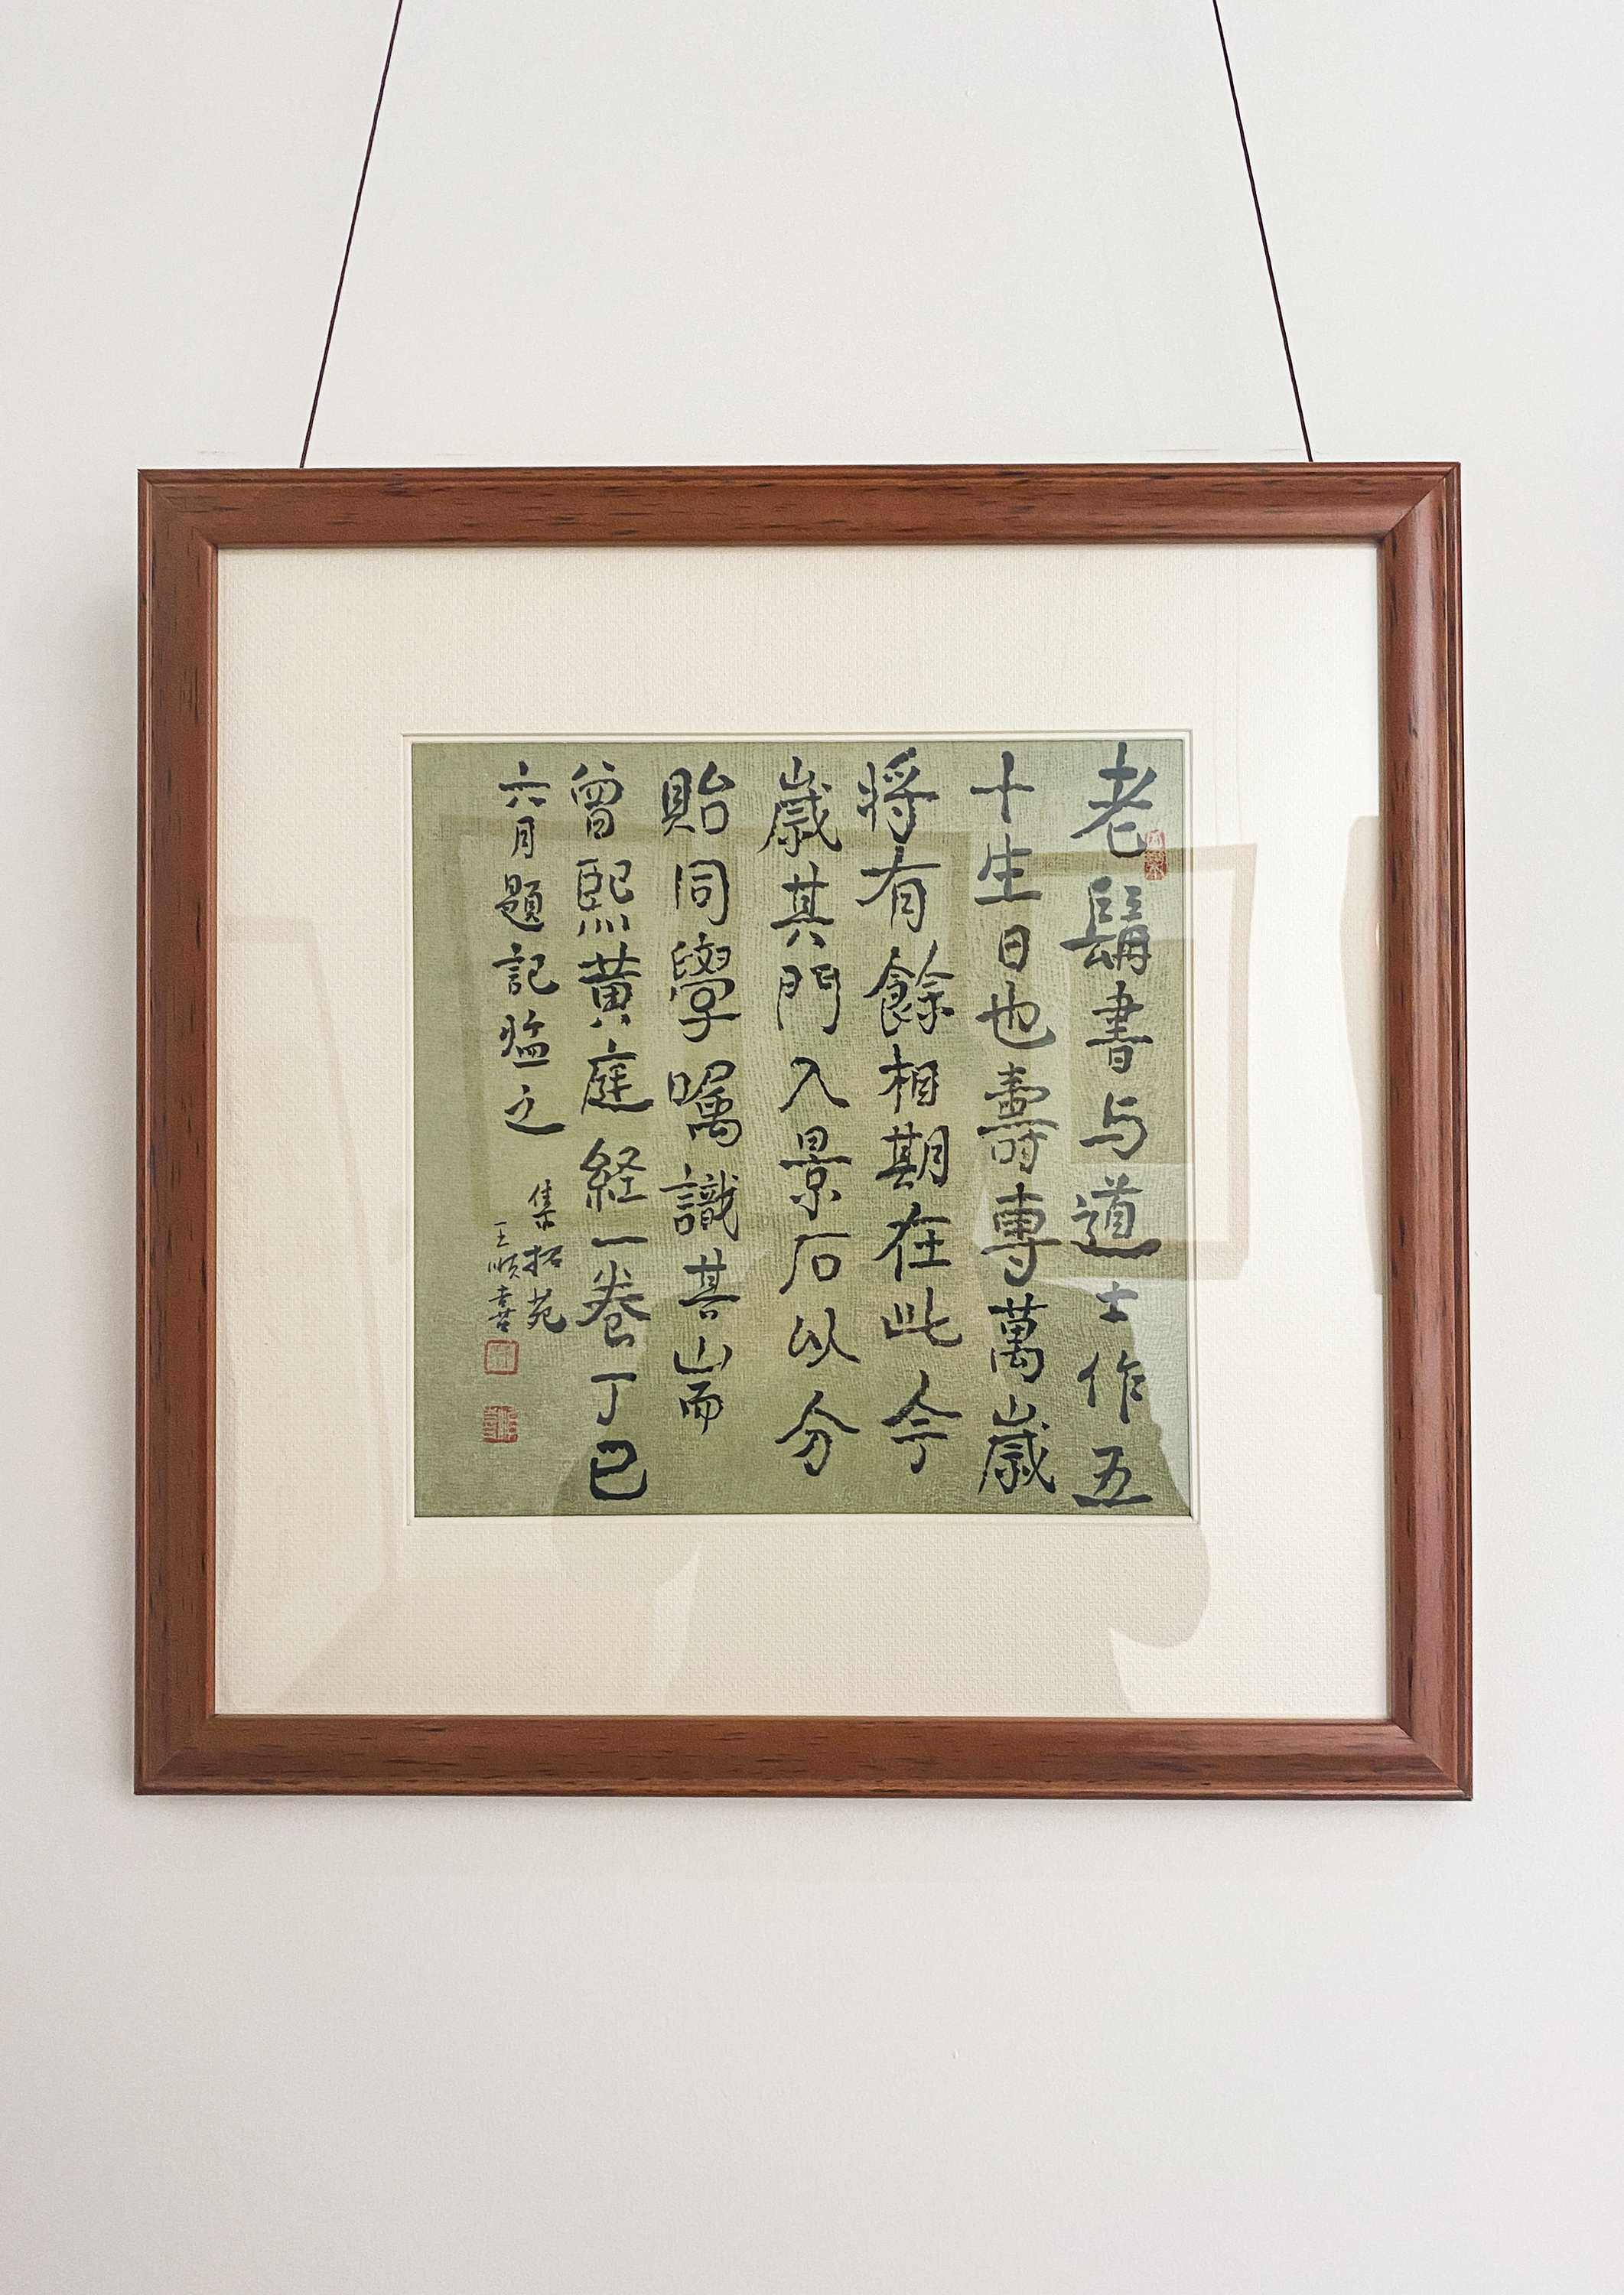 老髯書与道士作五
十生日也壽專萬歲
將有餘相期在此今
歲其門入景石以分
貽同學囑識其耑
曾熙黃庭経一卷丁巳
六月題記臨之
集拓苑
王順喜